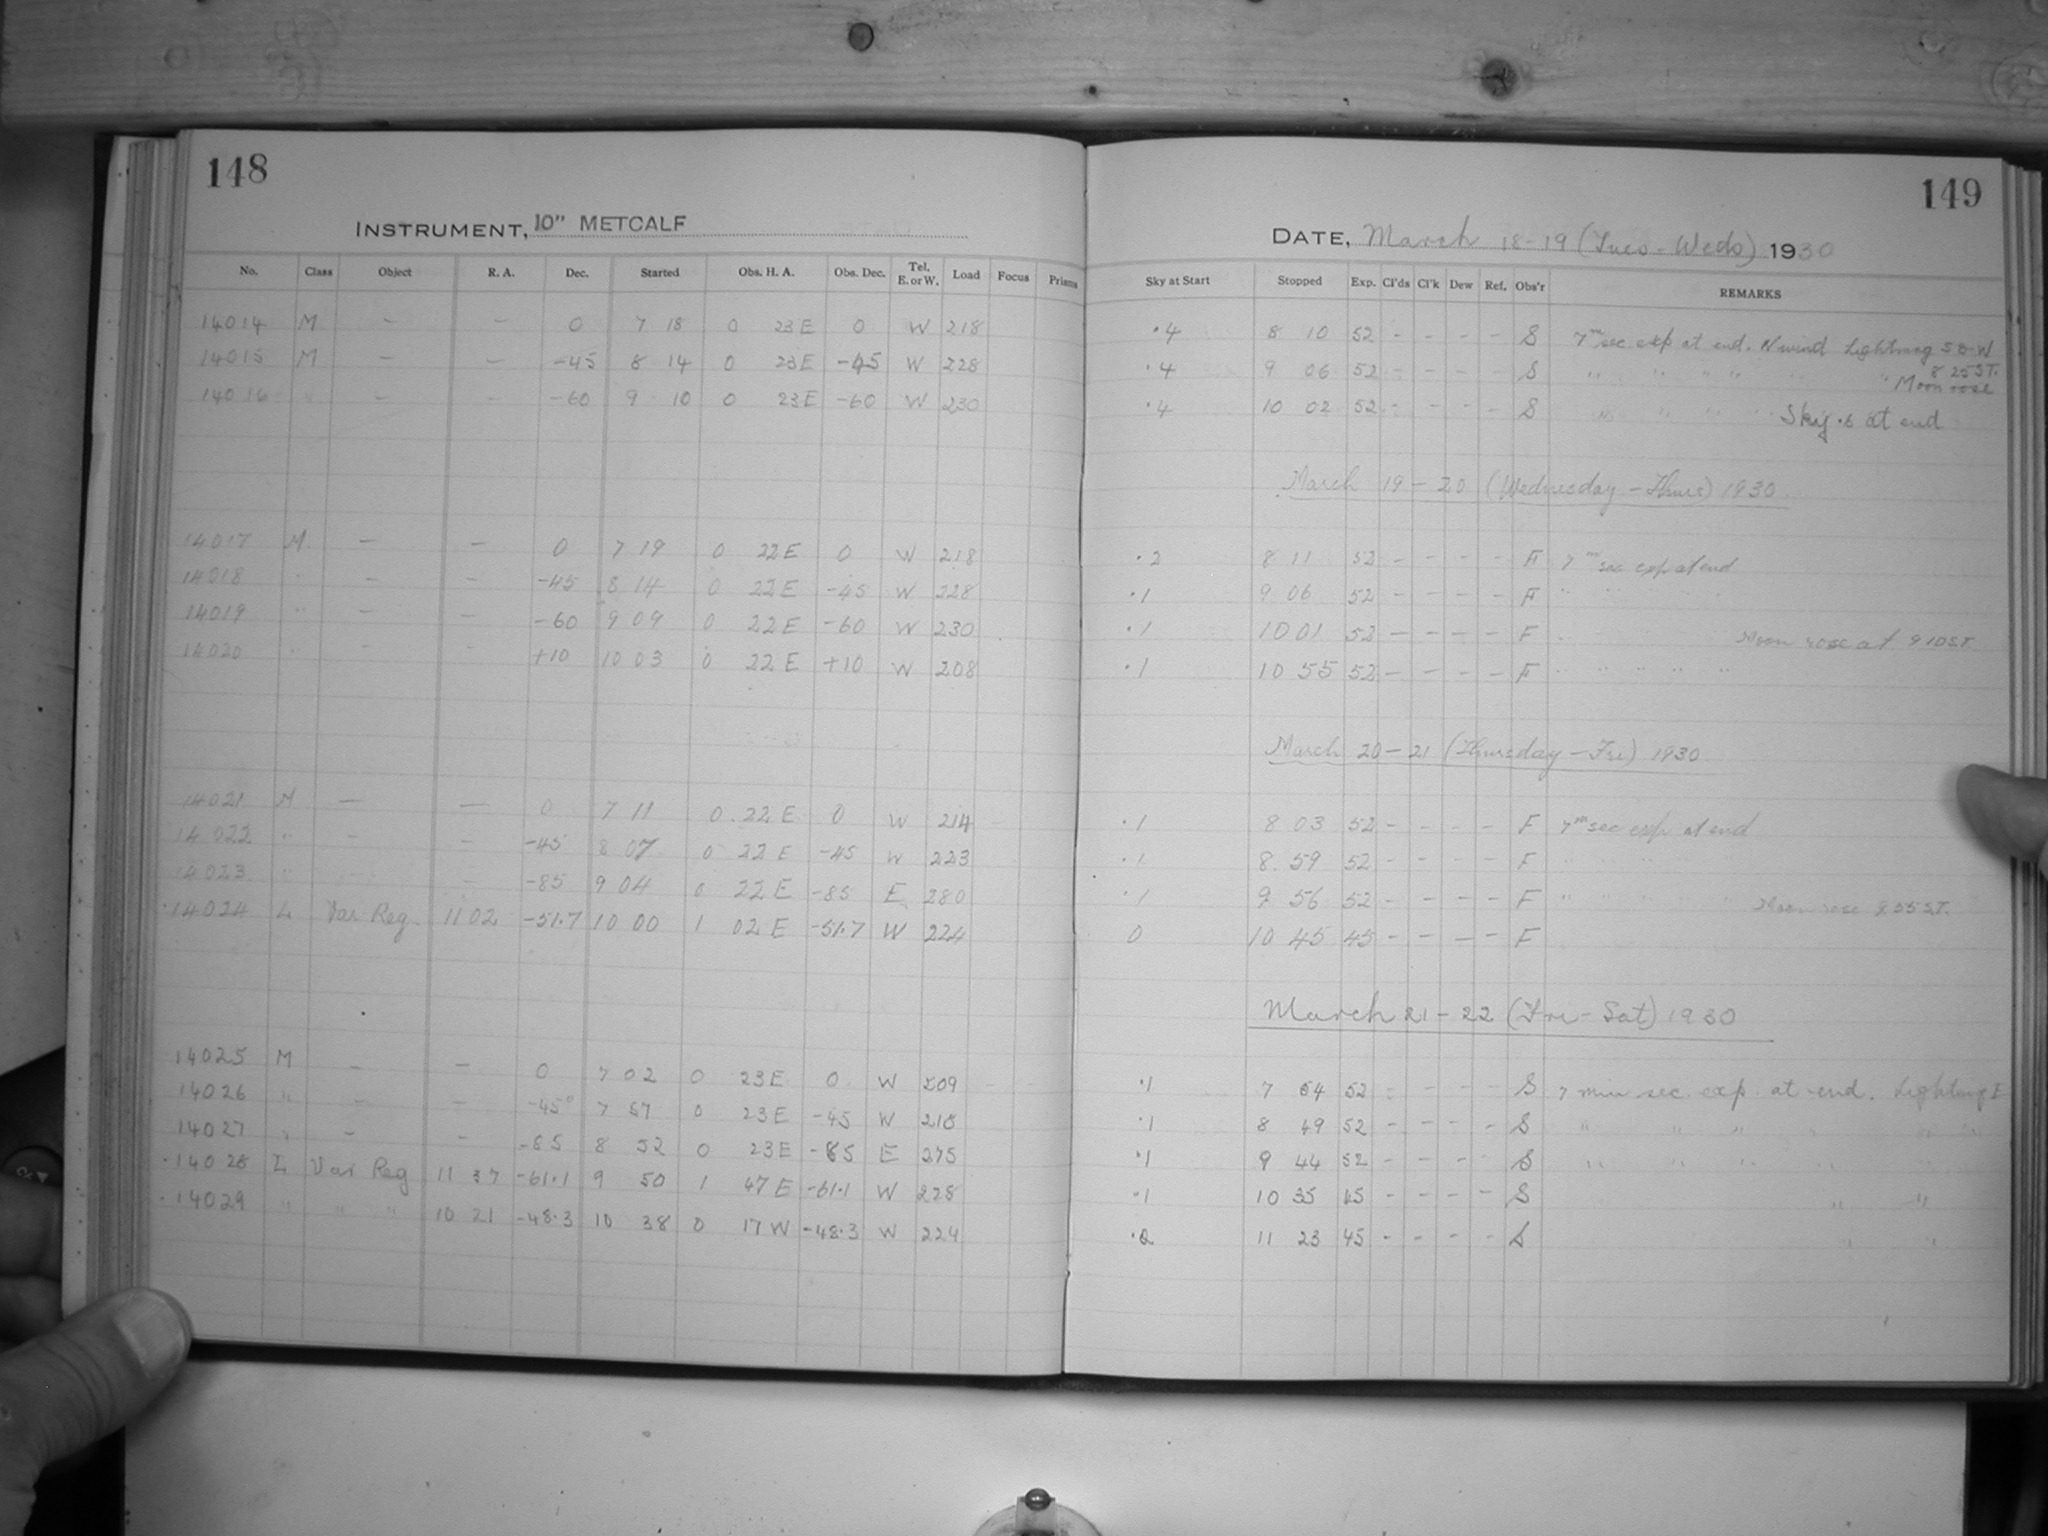 148
INSTRUMENT, 10" METCALF
No. Class Object R. A. Dec. Started Obs. H. A. Obs. Dec. Tel. E. or W. Load Focus Prisms
14014 M — — 0 7 18 0 23 E 0 W 218
14015 M — — -45 8 14 0 23 E -45 W 228
14016 " — — -60 9 10 0 23 E -60 W 230
14017 M — — 0 7 19 0 22 E 0 W 218
14018 " — — -45 8 14 0 22 E -45 W 228
14019 " — — -60 9 09 0 22 E -60 W 230
14020 " — — +10 10 03 0 22 E +10 W 208
14021 M — — 0 7 11 0 22 E 0 W 214
14022 " — — -45 8 07 0 22 E -45 W 223
14023 " — -85 9 04 0 22 E -85 E 280
14024 L Var Reg 11 02 -51.7 10 00 1 02 E -51.7 W 224
14025 M — — 0 7 02 0 23 E 0 W 209
14026 " — — -45° 7 57 0 23 E -45 W 218
14027 " — — -85 8 52 0 23 E -85 E 275
14028 L Var Reg 11 37 -61.1 9 50 1 47 E -61.1 W 228
14029 " " " 10 21 -48.3 10 38 0 17 W -48.3 W 224
149
DATE, March 18-19 (Tues-Weds) 1930
Sky at Start Stopped Exp. Cl'ds Cl'k Dew Ref. Obs'r REMARKS
.4 8 10 52 - - - - S 7m sec. exp at end. N wind Lightning S & W
.4 9 06 52 - - - - S " " " " " Moon rose 8 25 S.T.
.4 10 02 52 - - - - S " " " " Sky .5 at end
March 19-20 (Wednesday-Thurs) 1930
.2 8 11 52 - - - - F 7m sec exp at end
.1 9 06 52 - - - - F " "
.1 10 01 52 - - - - F " Moon rose at 9 10 S.T.
.1 10 55 52 - - - - F " " " " "
March 20-21 (Thursday-Fri) 1930
.1 8 03 52 - - - - F 7m sec exp at end
.1 8 59 52 - - - - F " " "
.1 9 56 52 - - - - F " " " " Moon rose 9 55 S.T.
0 10 45 45 - - - - F
March 21-22 (Fri-Sat) 1930
.1 7 54 52 - - - - S 7 min sec. exp. at end. Lightning E
.1 8 49 52 - - - - S " " " " " "
.1 9 44 52 - - - - S " " " " "
.1 10 35 45 - - - - S " "
.2 11 23 45 - - - - S " "